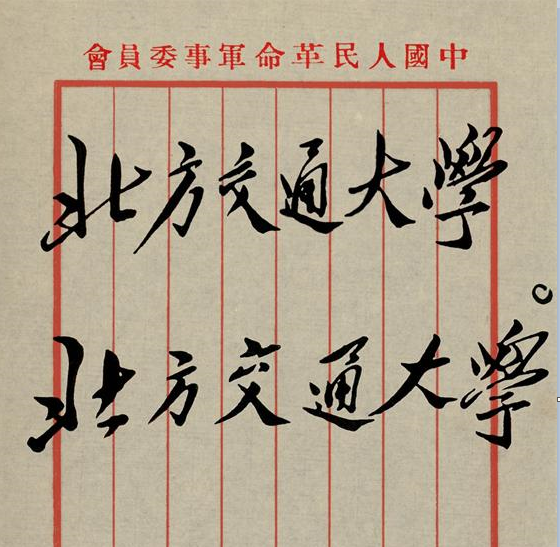 中國人民革命軍事委員會
北方交通大學
北方交通大學。